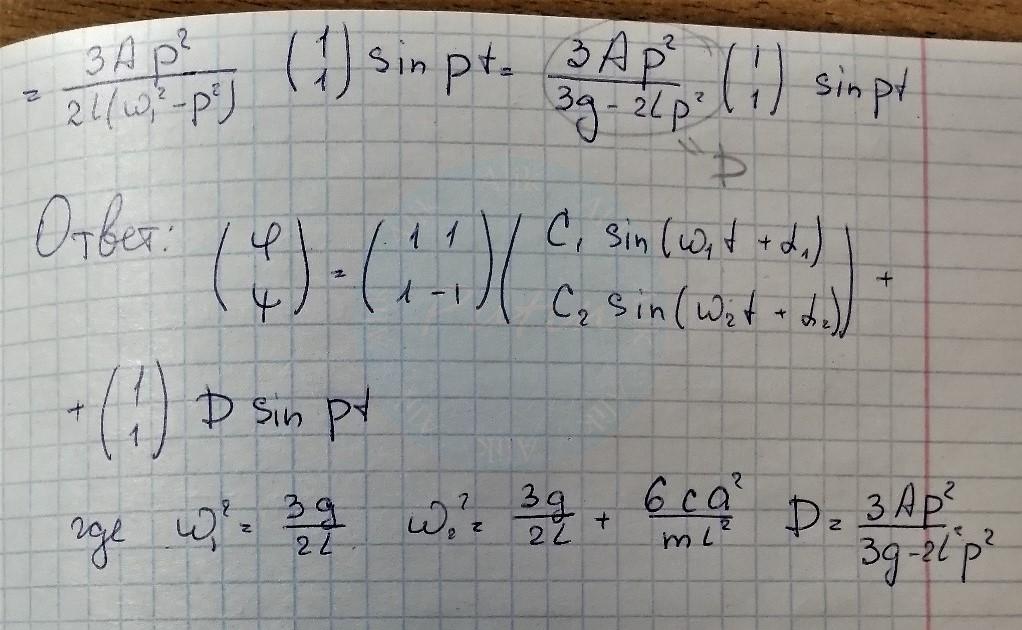 = 3Ap²/2l(ω₁²-p²) (1 1) sin pt = 3Ap²/3g-2lp² (1 1) sin pt
= D
Ответ: (φ ψ) = (1 1 1 -1) (C₁ sin(ω₁t + α₁) C₂ sin(ω₂t + α₂)) +
+ (1 1) D sin pt
где ω₁² = 3g/2l ω₂² = 3g/2l + 6ca²/ml² D = 3Ap²/3g-2lp²